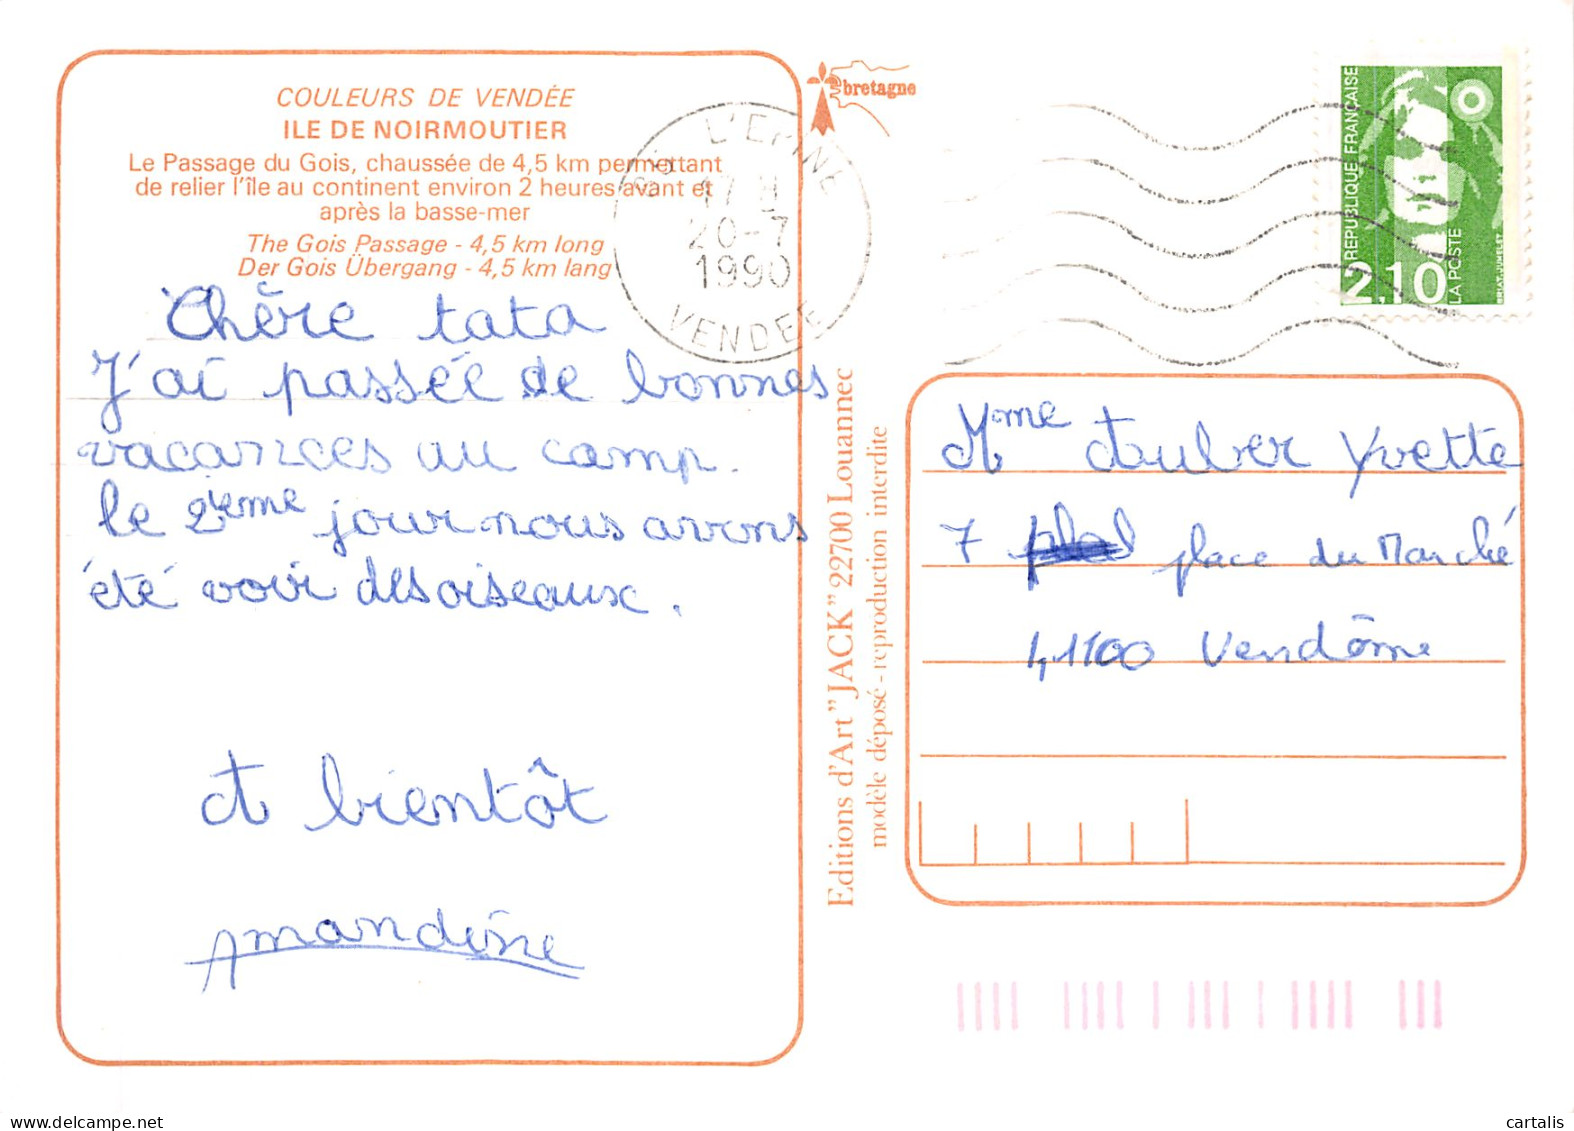 COULEURS DE VENDÉE
ILE DE NOIRMOUTIER
Le Passage du Gois, chaussée de 4,5 km permettant
de relier l'île au continent environ 2 heures avant et
après la basse-mer
The Gois Passage - 4,5 km long
Der Gois Übergang - 4,5 km lang
Chère tata
J'ai passée de bonnes
vacances au camp.
le 2ième jour nous avons
été voir des oiseaux.
A bientôt
Amandine
bretagne
85 L'EPINE
17 H
20-7
1990
VENDEE
REPUBLIQUE FRANÇAISE
2,10
LA POSTE
Editions d'Art "JACK" 22700 Louannec
modèle déposé - reproduction interdite
Mme Auber Yvette
7 place du Marché
41100 Vendôme
cartalis